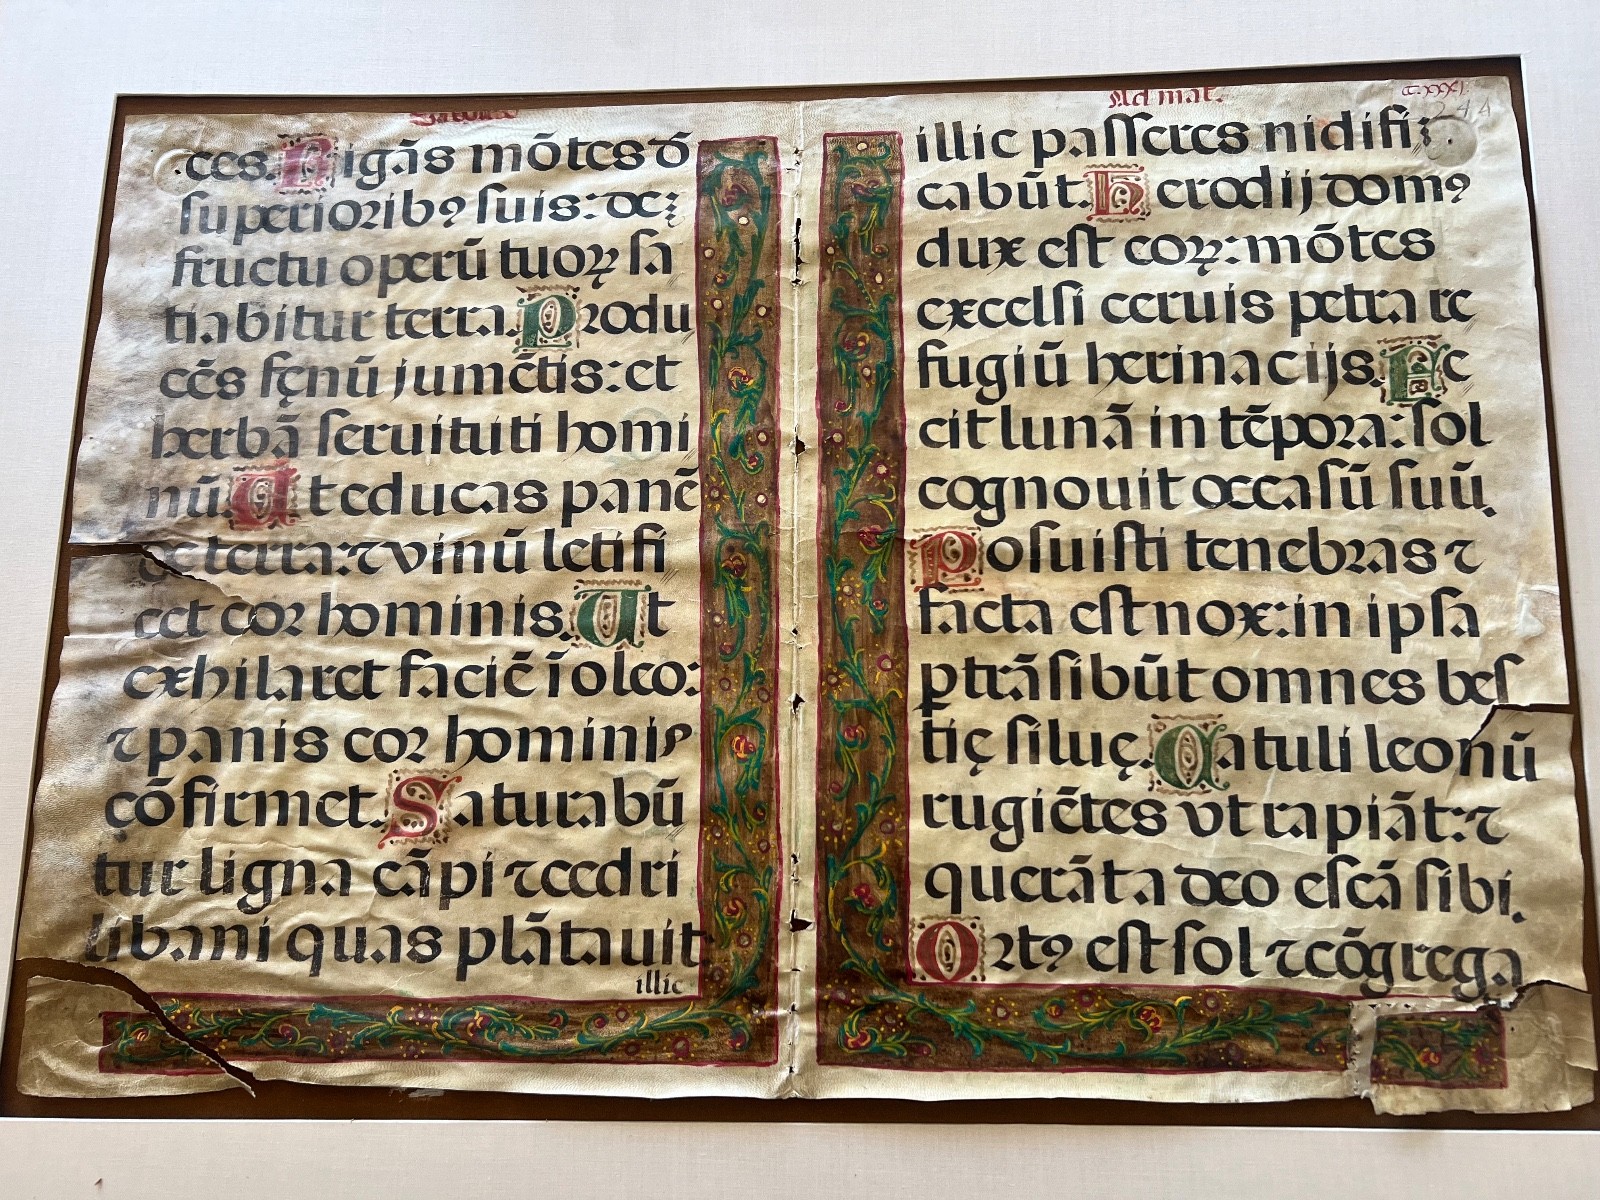 ces. Rigãs mõtes d̄
superiorib9 suis: de;
fructu operũ tuoꝝ sa
tiabitur terra. Produ
cẽs fęnũ jumẽtis: et
herbã seruituti homi
nũ. Ut educas panẽ
de terra: ⁊ vinũ letifi
cet cor hominis. Ut
exhilaret faciẽ ĩ oleo:
⁊ panis cor hominis
çõfirmet. Saturabũ
tur ligna cãpi ⁊ cedri
libani quas plãtauit.
illic
Ad mat.
c.xxxj.
244
illic passeres nidifi;
cabũt. Herodij dom9
dux est coꝝ: mõtes
excelsi ceruis petra re
fugiũ herinacijs. Fe
cit lunã in tẽpora: sol
cognouit occasũ suũ.
Posuisti tenebras ⁊
facta est nox: in ipsa
ꝑtrãsibũt omnes bes
tię siluę. Catuli leonũ
rugiẽtes vt rapiãt: ⁊
querãt a deo escã sibi.
Ort9 est sol ⁊ cõgrega